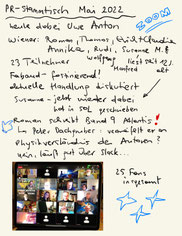 PR-Stammtisch Mai 2022
heute dabei Uwe Anton
ZOOM
Wiener: Roman, Thomas, Erich, Claudia
Annika, Rudi, Susanne M.
23 Teilnehmer
Wolfgang
Manfred
liest seit 12.
alt
Faband - faszinierend!
aktuelle Handlung diskutiert
Susanne - jetzt wieder dabei
hat in SOL geschrieben
Roman schreibt Band 9 Atlantis!
Im Peter Dachgruber: verzweifelt er an
Physikverständnis der Autoren?
nein, läuft gut über Slack...
25 Fans
insgesamt